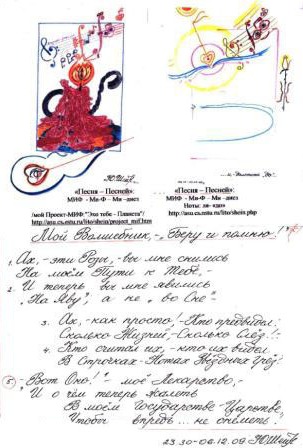 «Песня – Песней»:
МИФ - Ми-Ф - Ми -диез
/мой Проект-МИФ:"Это тебе - Планета"/
http://asu.cs.nstu.ru/lito/shein/project_mif.htm
«Песня – Песней»:
МИФ - Ми-Ф - Ми -диез
Ноты: ля- «до»
http://asu.cs.nstu.ru/lito/shein.php
Мой Волшебник, - "Беру и помню!"
1. Ах, - эти Розы, - вы мне снились
На моём Пути к Тебе, -
2. И теперь вы мне явились
"На Яву", а не "во Сне" -
3. Ах, - как просто, - Кто предвидел:
Сколько Жизней, - Сколько След!:
4. Кто считал их, - кто их видел
В Строчках - Нотах Звёздных
5. "Вот Оно!" - моё Лекарство, -
И о чём теперь жалеть
В моём Государстве - Царстве
Чтобы впредь... не онеметь!
23.30-06.12.09.